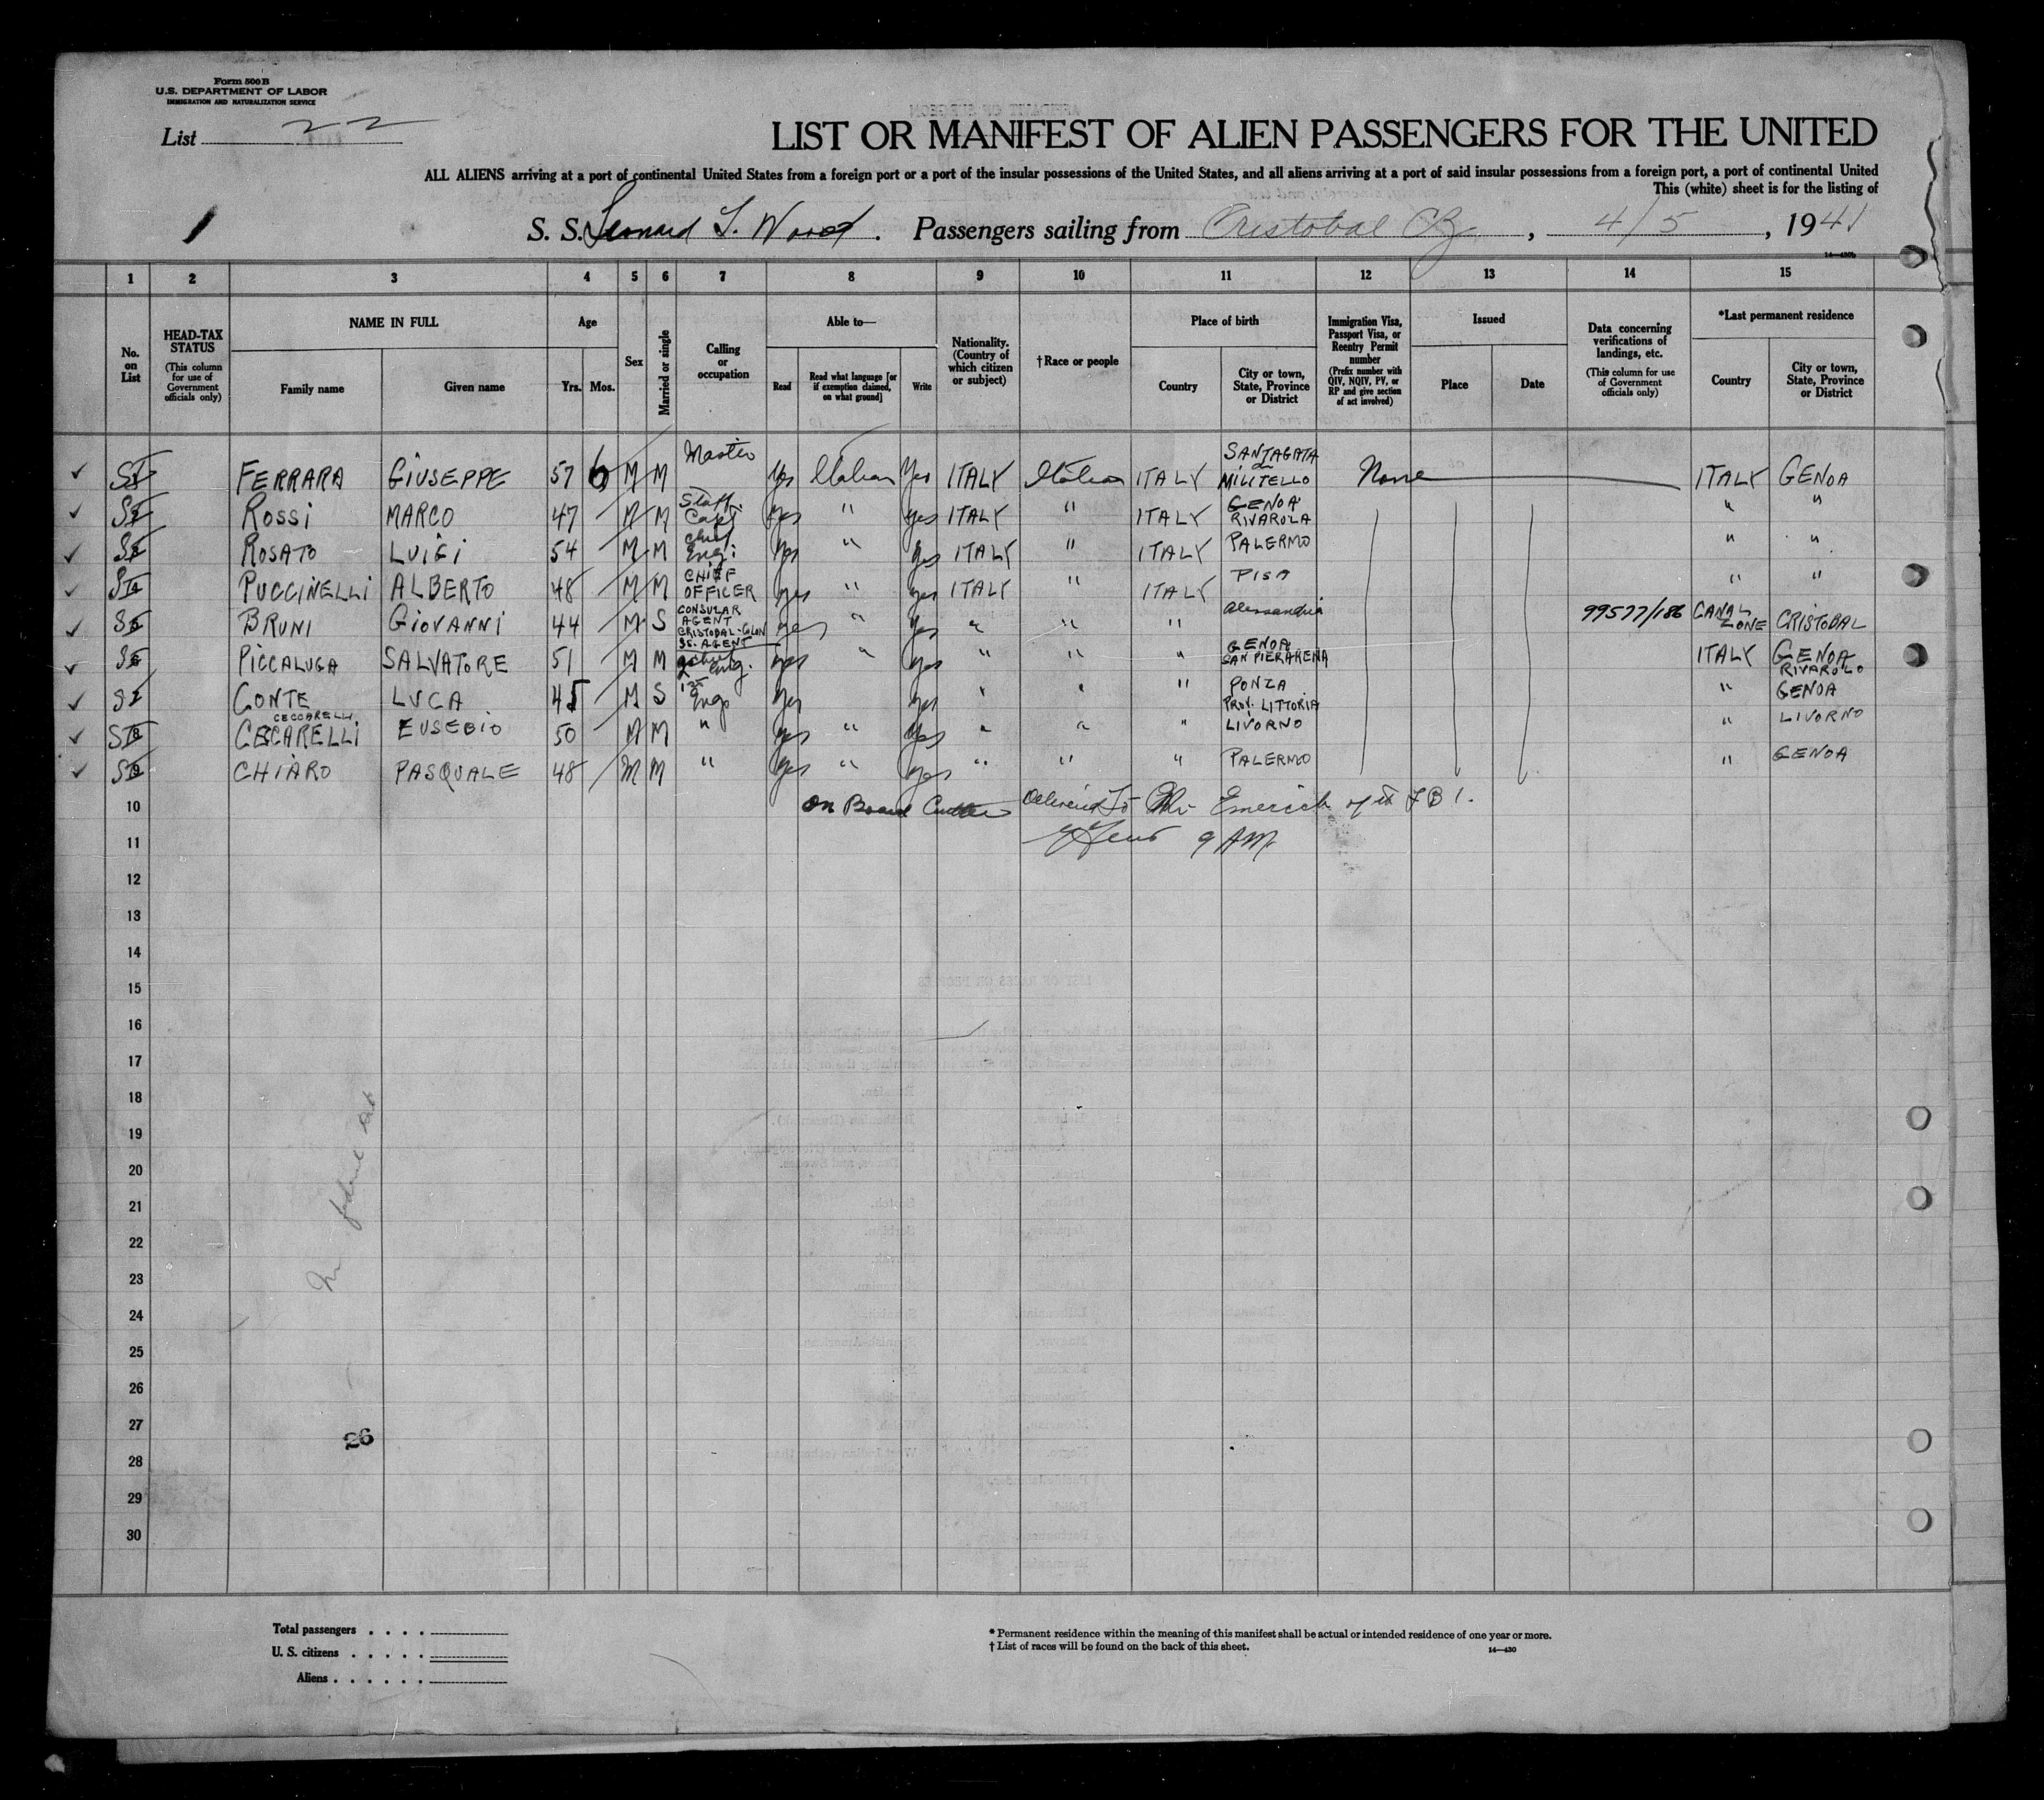 Form 500 B
U.S. DEPARTMENT OF LABOR
IMMIGRATION AND NATURALIZATION SERVICE
List 22
LIST OR MANIFEST OF ALIEN PASSENGERS FOR THE UNITED
ALL ALIENS arriving at a port of continental United States from a foreign port or a port of the insular possessions of the United States, and all aliens arriving at a port of said insular possessions from a foreign port, a port of continental United
This (white) sheet is for the listing of
1 S. S. Leonard L. Wood . Passengers sailing from Cristobal CZ , 4/5 , 1941
14—430b
1 2 3 4 5 6 7 8 9 10 11 12 13 14 15
No. on List
HEAD-TAX STATUS (This column for use of Government officials only)
NAME IN FULL
Family name Given name
Age
Yrs. Mos.
Sex
Married or single
Calling or occupation
Able to—
Read Read what language [or if exemption claimed, on what ground] Write
Nationality. (Country of which citizen or subject)
†Race or people
Place of birth
Country City or town, State, Province or District
Immigration Visa, Passport Visa, or Reentry Permit number (Prefix number with QIV, NQIV, PV, or RP and give section of act involved)
Issued
Place Date
Data concerning verifications of landings, etc. (This column for use of Government officials only)
*Last permanent residence
Country City or town, State, Province or District
FERRARA GIUSEPPE 57 6 M M Master Yes Italian Yes ITALY Italian ITALY SANTAGATA MILITELLO None ITALY GENOA
ROSSI MARCO 47 M M Staff Capt yes " yes ITALY " ITALY GENOA RIVAROLA " "
ROSATO LUIGI 54 M M Chief Eng. yes " yes ITALY " ITALY PALERMO " "
PUCCINELLI ALBERTO 48 M M CHIEF OFFICER yes " yes ITALY " ITALY PISA " "
BRUNI GIOVANNI 44 M S CONSULAR AGENT CRISTOBAL-COLON SS. AGENT yes " yes " " " Alessandria 99577/186 CANAL ZONE CRISTOBAL
PICCALUGA SALVATORE 51 M M Eng. yes " yes " " " GENOA SAN PIERARENA ITALY GENOA RIVAROLO
CONTE LUCA 45 M S 1st Eng yes yes " " " PONZA PROV. LITTORIA " GENOA
CECCARELLI
CECCARELLI EUSEBIO 50 M M " yes " yes " " " LIVORNO " LIVORNO
CHIARO PASQUALE 48 M M " yes " yes " " " PALERMO " GENOA
10 On Board Cutter Delivered To Mr Emerich of the FBI.
11 9 AM
12
13
14
15
16
17
18
19
20
21
22
23
24
25
26
27
26
28
29
30
Total passengers . . . .
U. S. citizens . . . . .
Aliens . . . . . .
* Permanent residence within the meaning of this manifest shall be actual or intended residence of one year or more.
† List of races will be found on the back of this sheet.
14—430